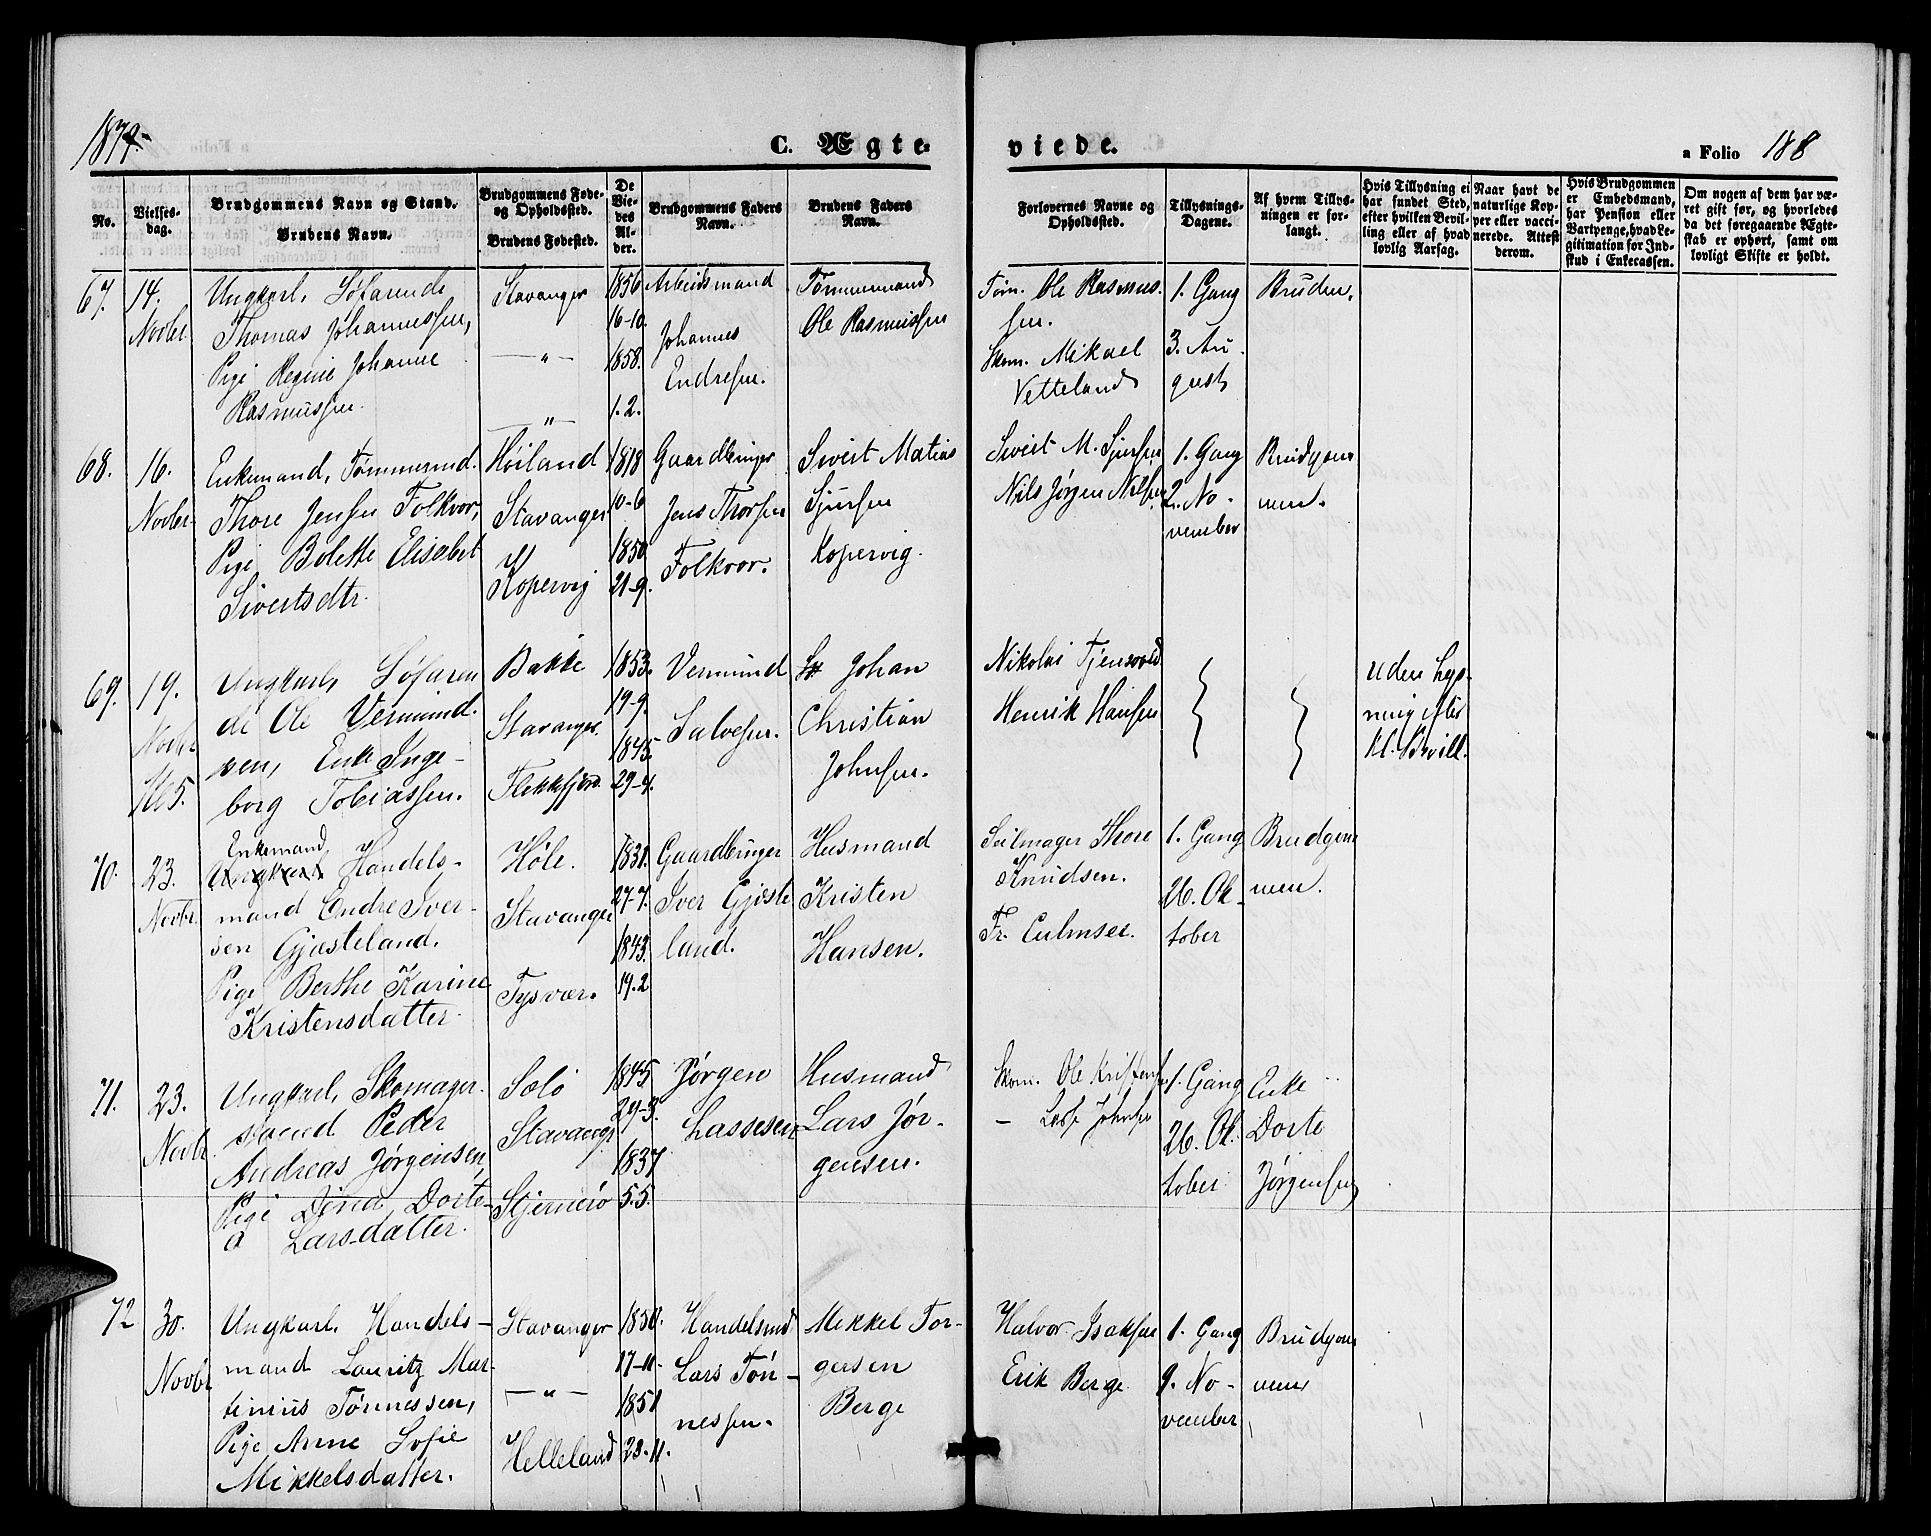 1879.
C. Ægte-
viede.
a Folio 188
No.
Vielses-
dag.
Brudgommens Navn og Stand.
Brudens Navn.
Brudgommens Føde-
og Opholdssted.
Brudens Fødested.
De
Vie-
des
Al-
der.
Brudgommens Faders
Navn.
Brudens Faders
Navn.
Forlovernes Navne og
Opholdssted.
Tillysnings-
Dagene.
Af hvem Tillys-
ningen er for-
langt.
Hvis Tillysning ei
har fundet Sted,
efter hvilken Bevil-
ling eller af hvad
lovlig Aarsag.
Naar havt de
naturlige Kop-
per eller vacci-
nerede. Attest
derom.
Hvis Brudgommen
er Embedsmand,
har Pension eller
Vartpenge, hvad Le-
gitimation for Ind-
skud i Enkecassen.
Om nogen af dem har væ-
ret gift før, og hvorledes
da det foregaaende Ægte-
skab er ophørt, samt om
lovligt Skifte er holdt.
67.
14.
Novbr
Ungkarl, Søfarende
Thomas Johannessen,
Pige Regine Johanne
Rasmussen.
Stavanger
— " —
— " —
1856
16-10.
1858.
1.2.
Arbeidsmand
Johannes
Endresen.
Tømmermand
Ole Rasmussen
Tøm. Ole Rasmus-
sen.
Skom. Mikael
Vetteland
1. Gang
3. Au-
gust
Bruden.
68.
16.
Novbr
Enkemand, Tømmermd.
Thore Jensen Folkvor,
Pige Bolette Elisabet
Sivertsdtr.
Høiland
Stavanger
Kopervig
1818
10-6
1850
21-9.
Gaardbruger
Jens Thorsen
Folkvor.
Sivert Matias
Sjursen
Kopervig.
Sivert M. Sjursen
Nils Jørgen Nilsen
1. Gang
2. No-
vember
Brudgom-
men.
69.
19.
Novbr
Kl 5.
Ungkarl, Søfaren
de Ole Vermund-
sen, Enke Inge-
borg Tobiassen.
Bakke
Stavanger.
Flekkefjord
1853.
19-9.
1845
29-4.
Vermund
Salvesen.
Johan
Christian
Johnsen.
Nikolai
Henrik Hansen
uden lys-
ning efter
Kl. Bevill.
70.
23.
Novbr
Enkemand,
Ungkarl Handels-
mand Endre Iver-
sen Gjæsteland.
Pige Berthe Karine
Kristensdatter.
Høle.
Stavanger
Tysvær.
1831.
27-7.
1843.
19.2
Gaardbruger
Iver Gjæste
land.
Husmand
Kristen
Hansen.
Seilmager Thore
Knudsen.
Fr. Culmsee.
1. Gang
26. Ok-
tober
Brudgom
men.
71.
23.
Novbr.
Ungkarl, Skomager-
svend Peder
Andreas Jørgensen,
Pige Dorte-
a Larsdatter.
Stavanger
Stjernerø
1845
29-3.
1837
5.5.
Jørgen
Lassesen
Husmand
Lars Jør-
gensen.
Skom. Ole Kristensen
— Johnsen
1. Gang
26. Ok-
tober
Enke
Dorte
Jørgensen
72
30.
Novbr
Ungkarl, Handels-
mand Lauritz Mar-
tinius Tønnessen,
Pige Anne Sofie
Mikkelsdatter.
Stavanger
— " —
Helleland
1850.
17-11.
1851
23-11.
Handelsmd
Lars Tøn-
nessen.
Mikkel Tor-
gersen
Berge
Halvor Isaksen
Erik Berge
1. Gang
9. No-
vember
Brudgom
men